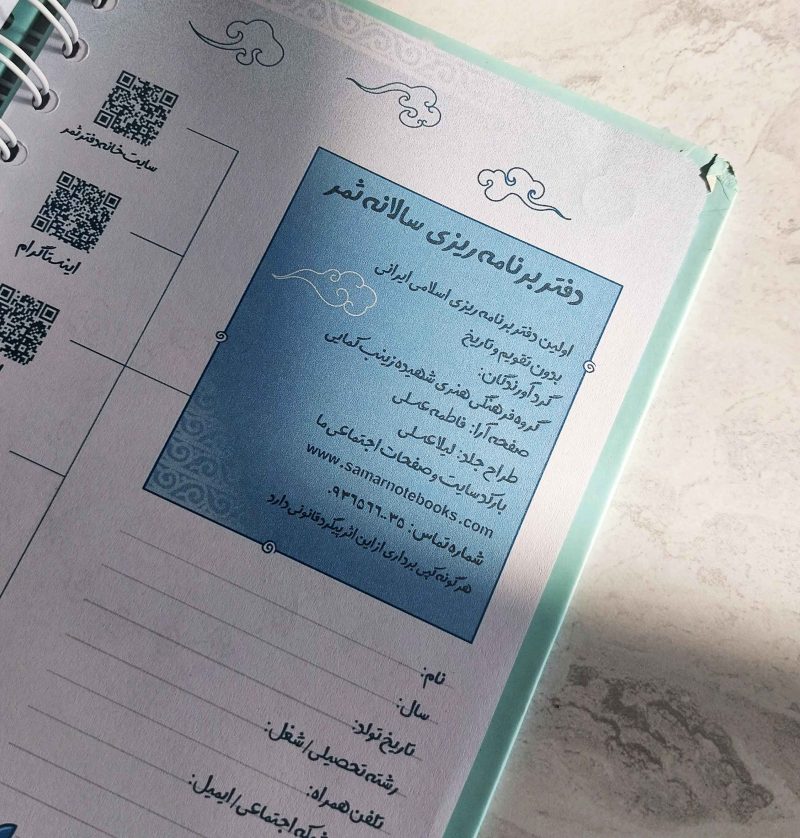 دفتر برنامه ریزی سالانه ثمر
اولین دفتر برنامه ریزی اسلامی ایرانی
بدون تقویم و تاریخ
گردآورندگان:
گروه فرهنگی هنری شهیده زینب کمایی
صفحه آرا: فاطمه عسلی
طراح جلد: لیلا عسلی
بارکد سایت و صفحات اجتماعی ما
www.samarnotebooks.com
شماره تماس:
هرگونه کپی برداری از این اثر پیگرد قانونی دارد
سایت خانه دفتر ثمر
اینستاگرام
نام:
سال:
تاریخ تولد:
رشته تحصیلی/ شغل:
تلفن همراه:
شبکه اجتماعی/ ایمیل: